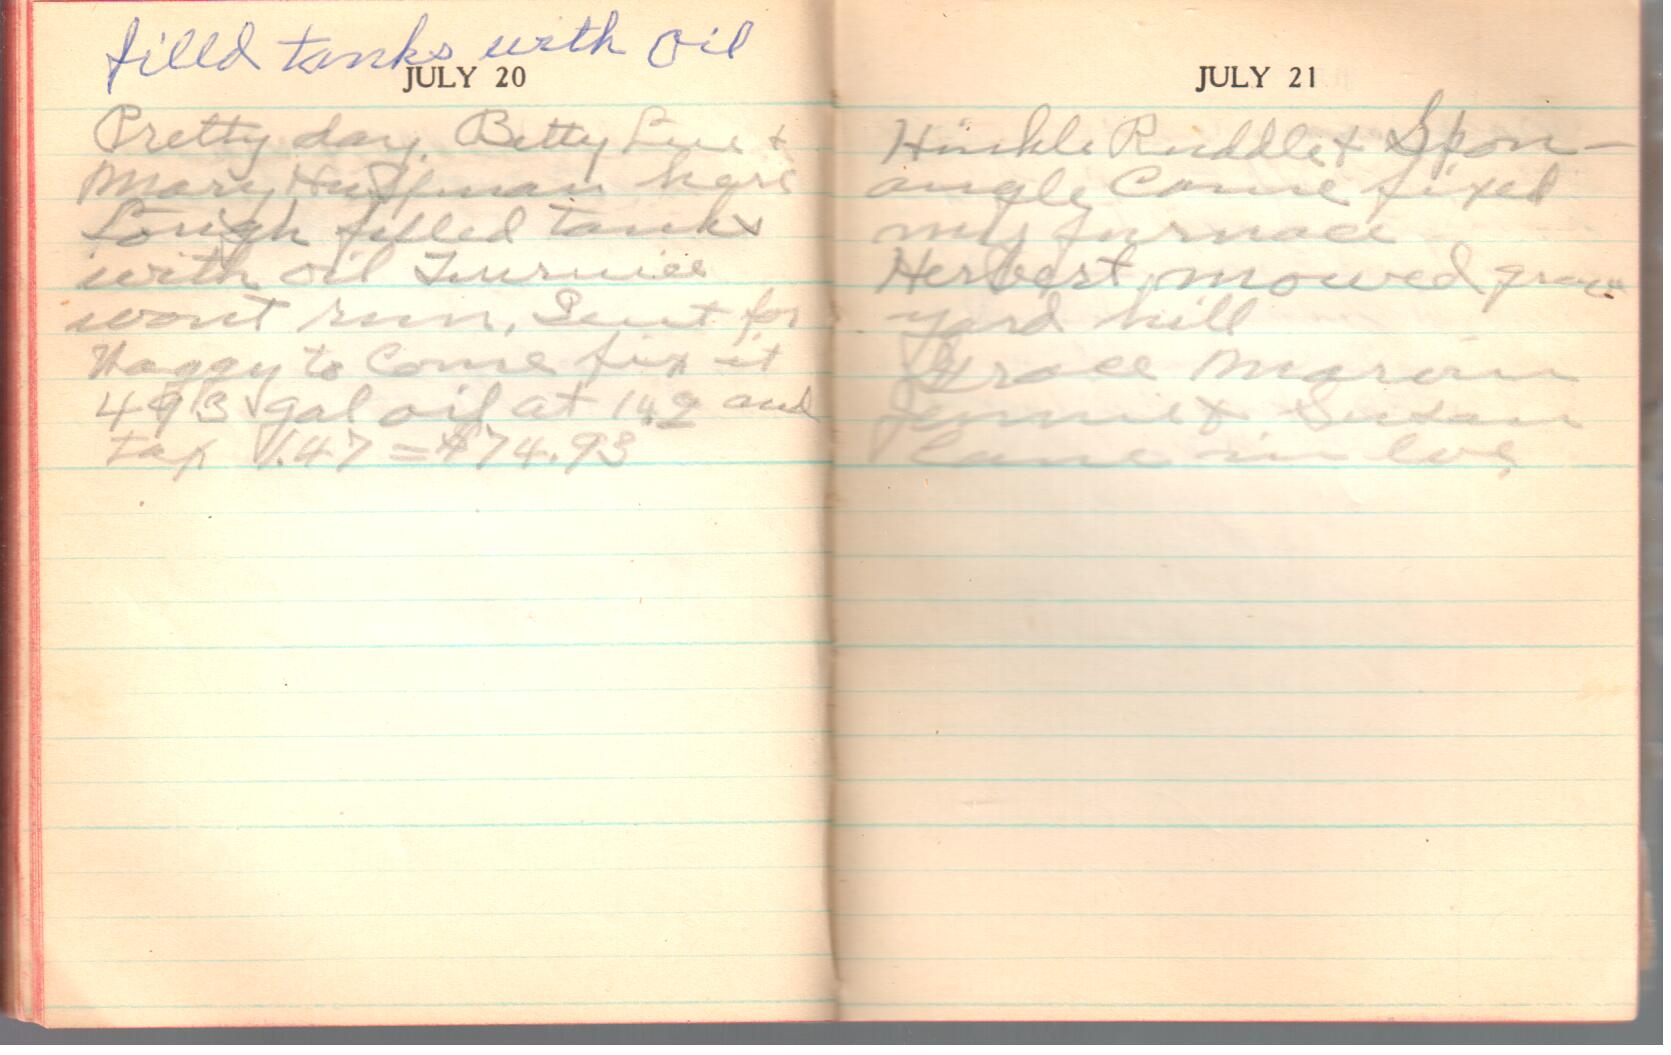 filld tanks with oil
JULY 20
Pretty day, Betty Sue +
Mary Huffman here
Lough filled tanks
with oil Furnice
wont run, Sent for
Haggy to Come fix it
493 gal oil at 15.2 and
tax 1.47 = $74.93
JULY 21
Hinkle Ruddle + Spon-
angle Came fixed
my furnace
Herbert mowed grave
yard hill
Grace Marvin
Jennie + Susan
Came in eve,